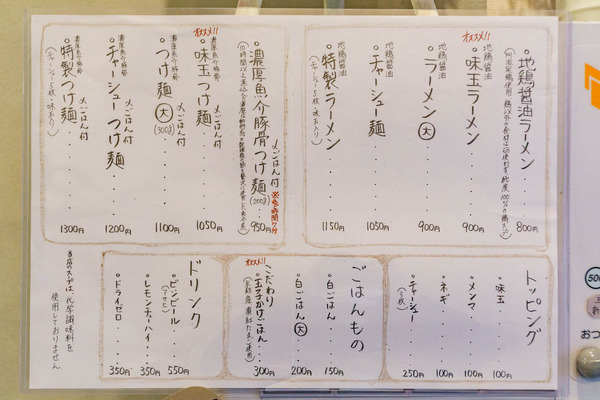 地鶏醤油ラーメン
800円
オススメ!!
地鶏醤油
味玉ラーメン
900円
地鶏醤油
ラーメン 大
900円
地鶏醤油
チャーシュー麺
1050円
地鶏醤油
特製ラーメン
(チャーシュー5枚・味玉入り)
1150円
濃厚魚介豚骨つけ麺
(200g)
〆ごはん付
950円
オススメ!!
濃厚魚介豚骨
味玉つけ麺
〆ごはん付
1050円
濃厚魚介豚骨
つけ麺 大
(300g)
〆ごはん付
1100円
濃厚魚介豚骨
チャーシューつけ麺
〆ごはん付
1200円
濃厚魚介豚骨
特製つけ麺
(チャーシュー5枚・味玉入り)
〆ごはん付
1300円
トッピング
味玉
100円
メンマ
100円
ネギ
100円
チャーシュー
(3枚)
250円
ごはんもの
白ごはん
150円
白ごはん 大
200円
オススメ!!
こだわり
玉子かけごはん
300円
ドリンク
ビンビール
(アサヒ)
550円
レモンチューハイ
350円
ドライゼロ
350円
当店のスープは、化学調味料を
使用しておりません。
500
おつ